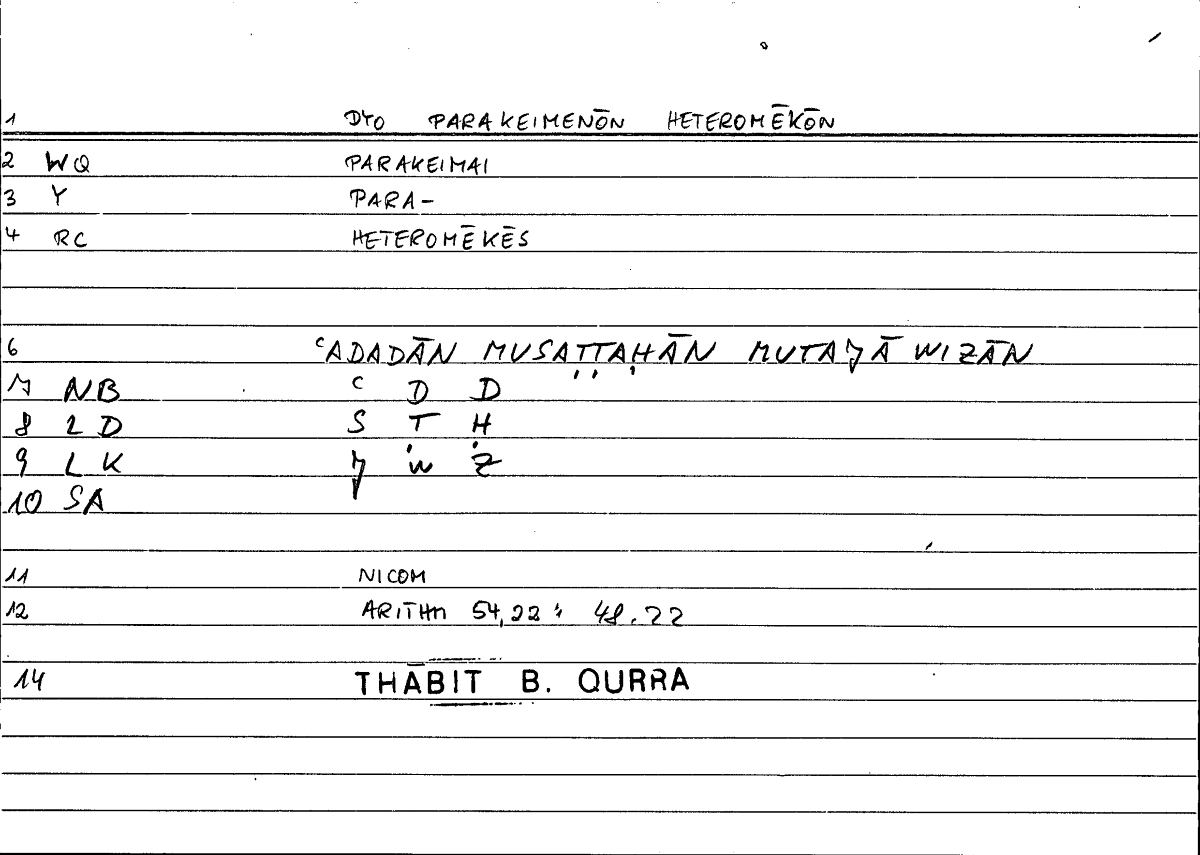 1 DYO PARAKEIMENŌN HETEROMĒKŌN
2 WQ PARAKEIMAI
3 Y PARA-
4 RC HETEROMĒKĒS
6 ʿADADĀN MUSAṬṬAḤĀN MUTAJĀWIZĀN
7 NB ʿ D D
8 2 D S Ṭ Ḥ
9 L K J W Z
10 SA
11 NICOM
12 ARITHM 54,22 ; 48.22
14 THĀBIT B. QURRA